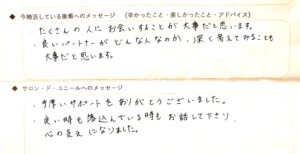 今婚活している後輩へのメッセージ (辛かったこと・楽しかったこと・アドバイス)
・たくさんの人にお会いすることが大事だと思います。
・良いパートナーがどんな人なのか、深く考えてみることも
大事だと思います。
サロン・ド・ユニールへのメッセージ
・手厚いサポートをありがとうございました。
・良い時も落込んでいる時もお話して下さり、
心の支えになりました。